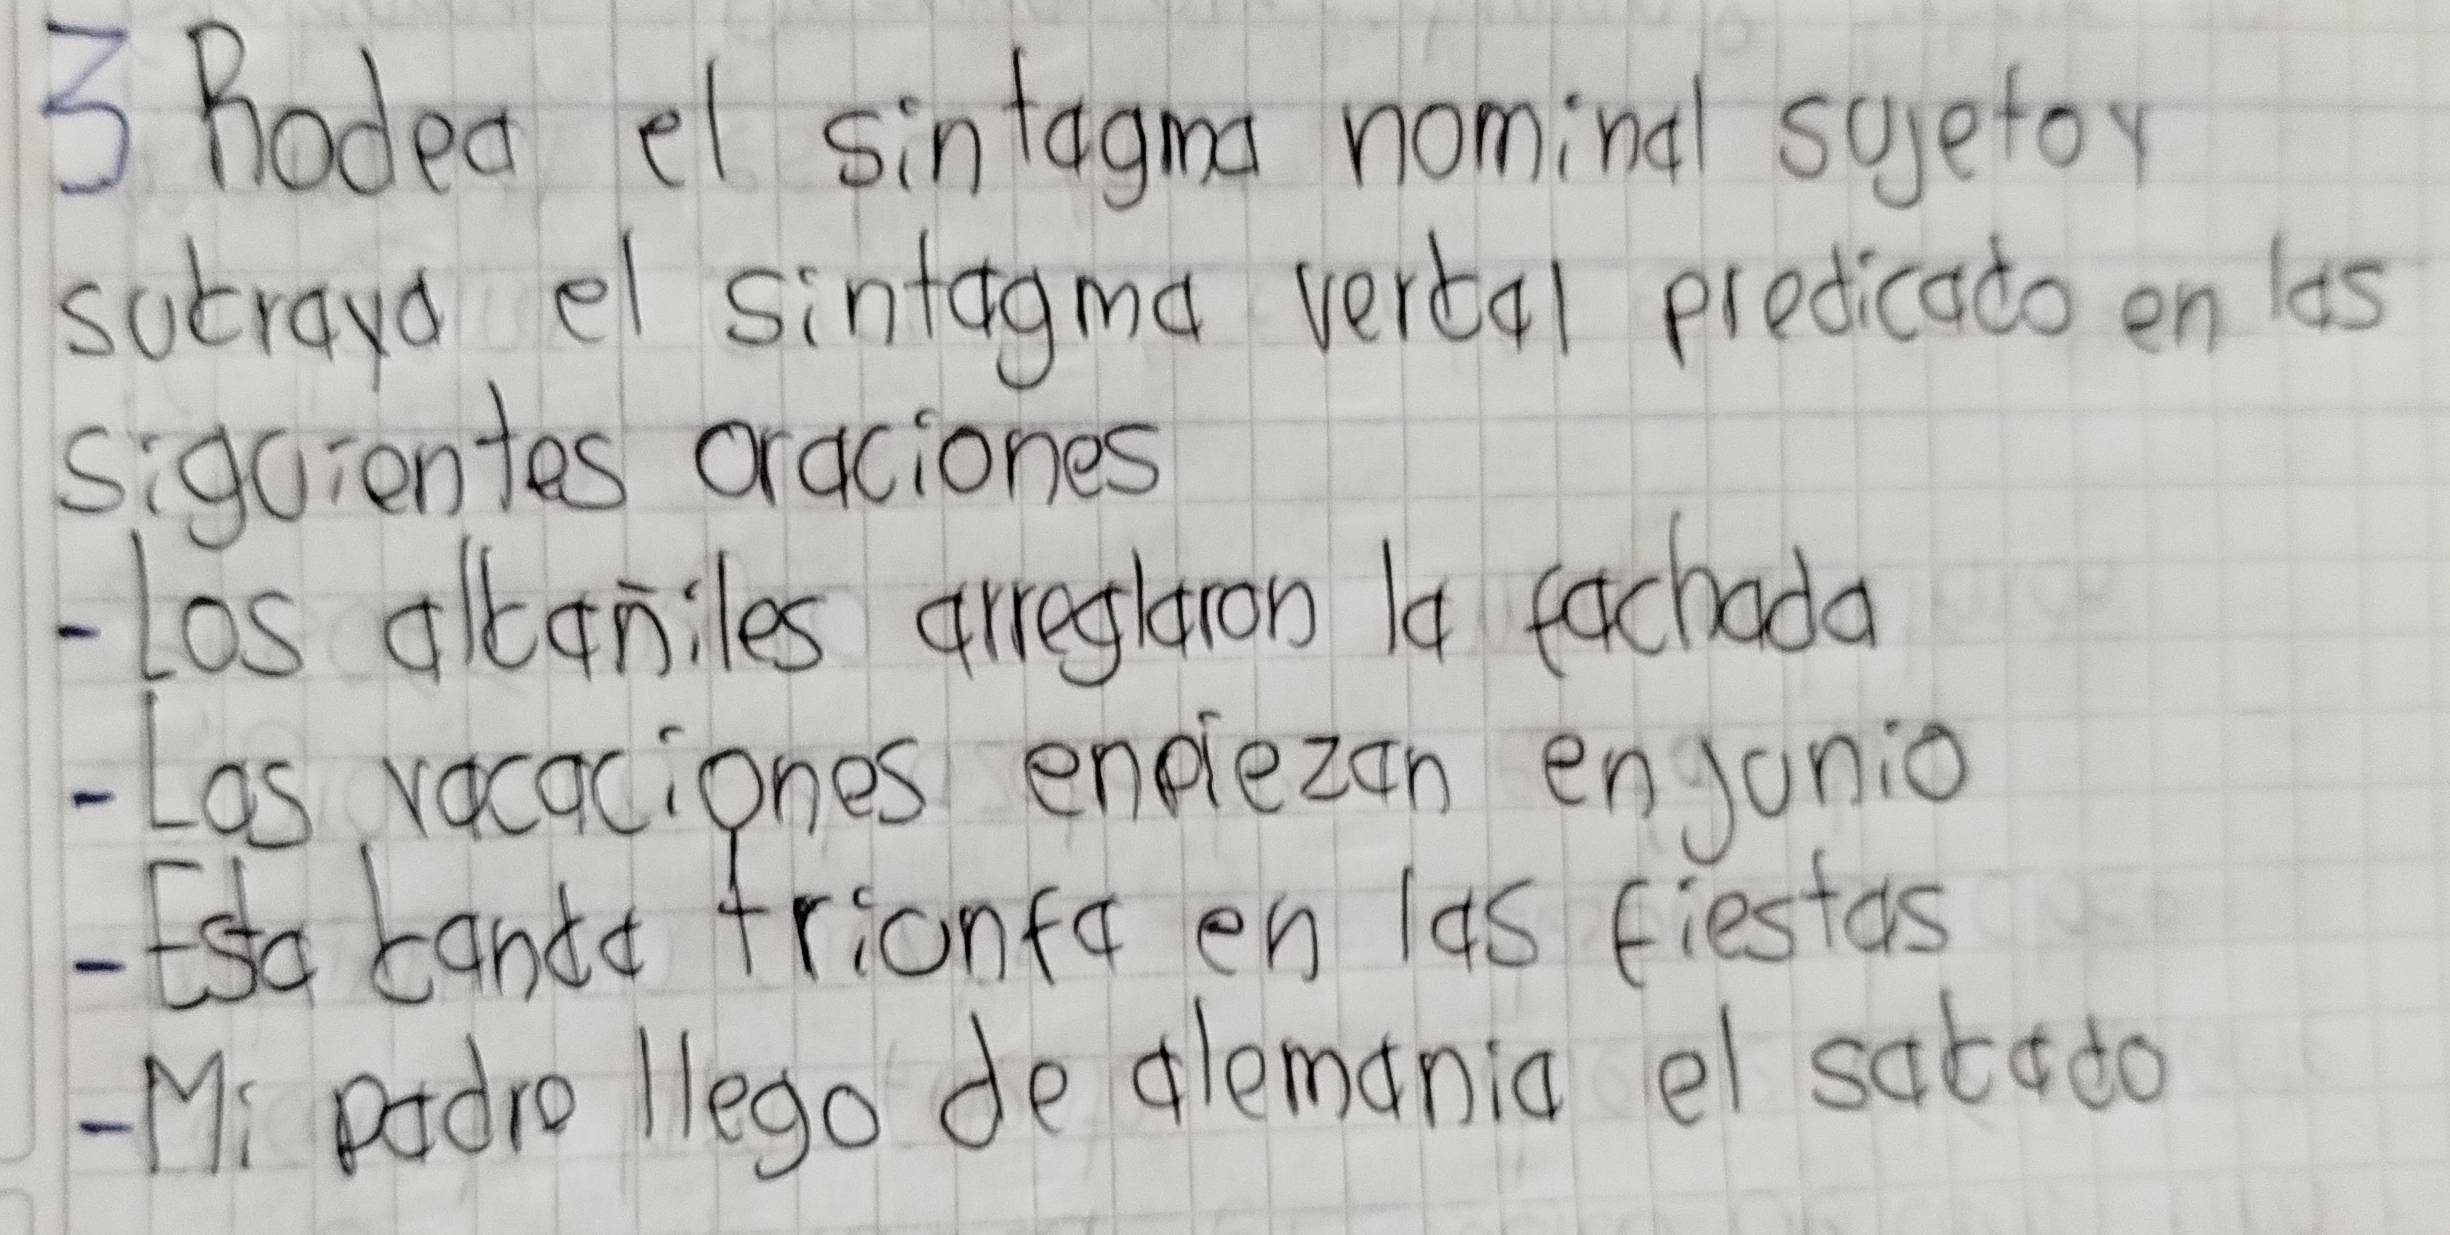 3 Rodea el sintagma nominal sujeto y
subraya el sintagma verbal predicado en las
siguientes oraciones
- Los albañiles arreglaron la fachada
- Las vacaciones enpiezan en junio
- Esta banda triunfa en las fiestas
- Mi padre llego de alemania el sabado